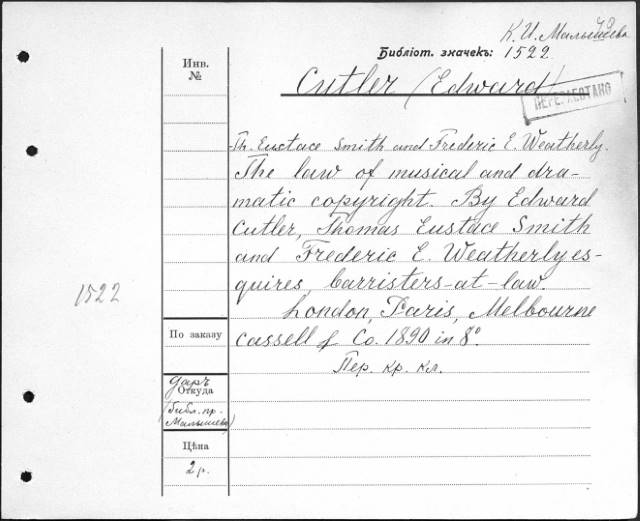 К. И. Малышева
Библіот. значекъ: 1522
Инв. №
Cutler (Edward)
ПЕРЕРАБОТАНО
Th. Eustace Smith and Frederic E. Weatherly.
The law of musical and dra-
matic copyright. By Edward
Cutler, Thomas Eustace Smith
and Frederic E. Weatherly es-
quires, barristers-at-law.
1522
London, Paris, Melbourne
По заказу
Cassell & Co. 1890 in 8°.
Пер. кр. кл.
даръ
Откуда
(библ. пр.
Малышева)
Цѣна
2 р.